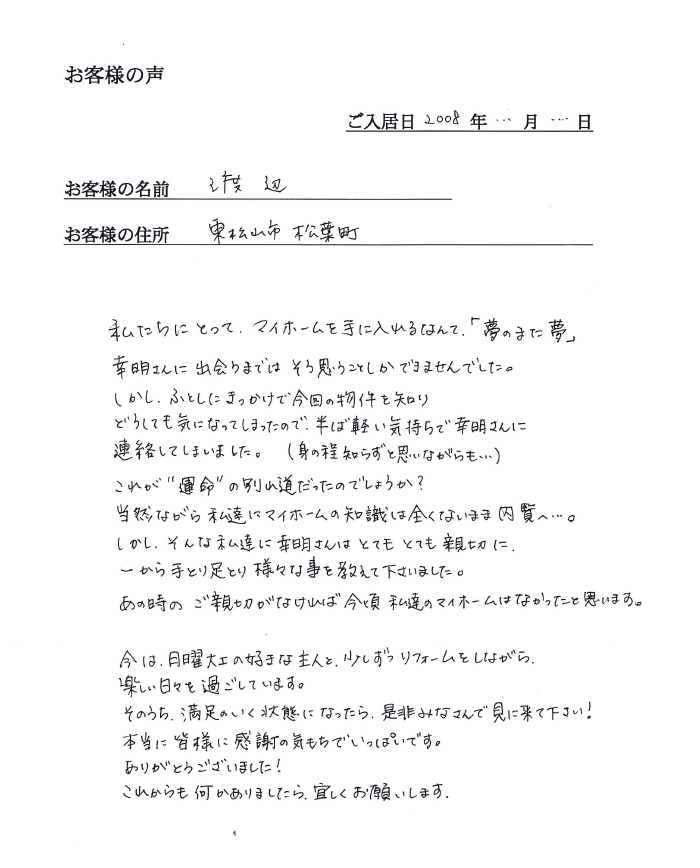 お客様の声
ご入居日 2008 年 … 月 … 日
お客様の名前 渡辺
お客様の住所 東松山市 松葉町
私たちにとって、マイホームを手に入れるなんて、「夢のまた夢」
幸明さんに出会うまでは そう思うことしかできませんでした。
しかし、ふとしたきっかけで今回の物件を知り
どうしても気になってしまったので、半ば軽い気持ちで幸明さんに
連絡してしまいました。 (身の程知らずと思いながらも…)
これが"運命"の別れ道だったのでしょうか?
当然ながら 私達にマイホームの知識は全くないまま 内覧へ…。
しかし、そんな私達に幸明さんは とても とても 親切に、
一から手とり足とり 様々な事を教えて下さいました。
あの時の ご親切がなければ 今頃 私達のマイホームはなかったと思います。
今は、日曜大工の好きな主人と、少しずつリフォームをしながら、
楽しい日々を過ごしています。
そのうち、満足のいく状態になったら、是非みなさんで見に来て下さい!
本当に皆様に感謝の気もちでいっぱいです。
ありがとうございました!
これからも 何かありましたら、宜しくお願いします.